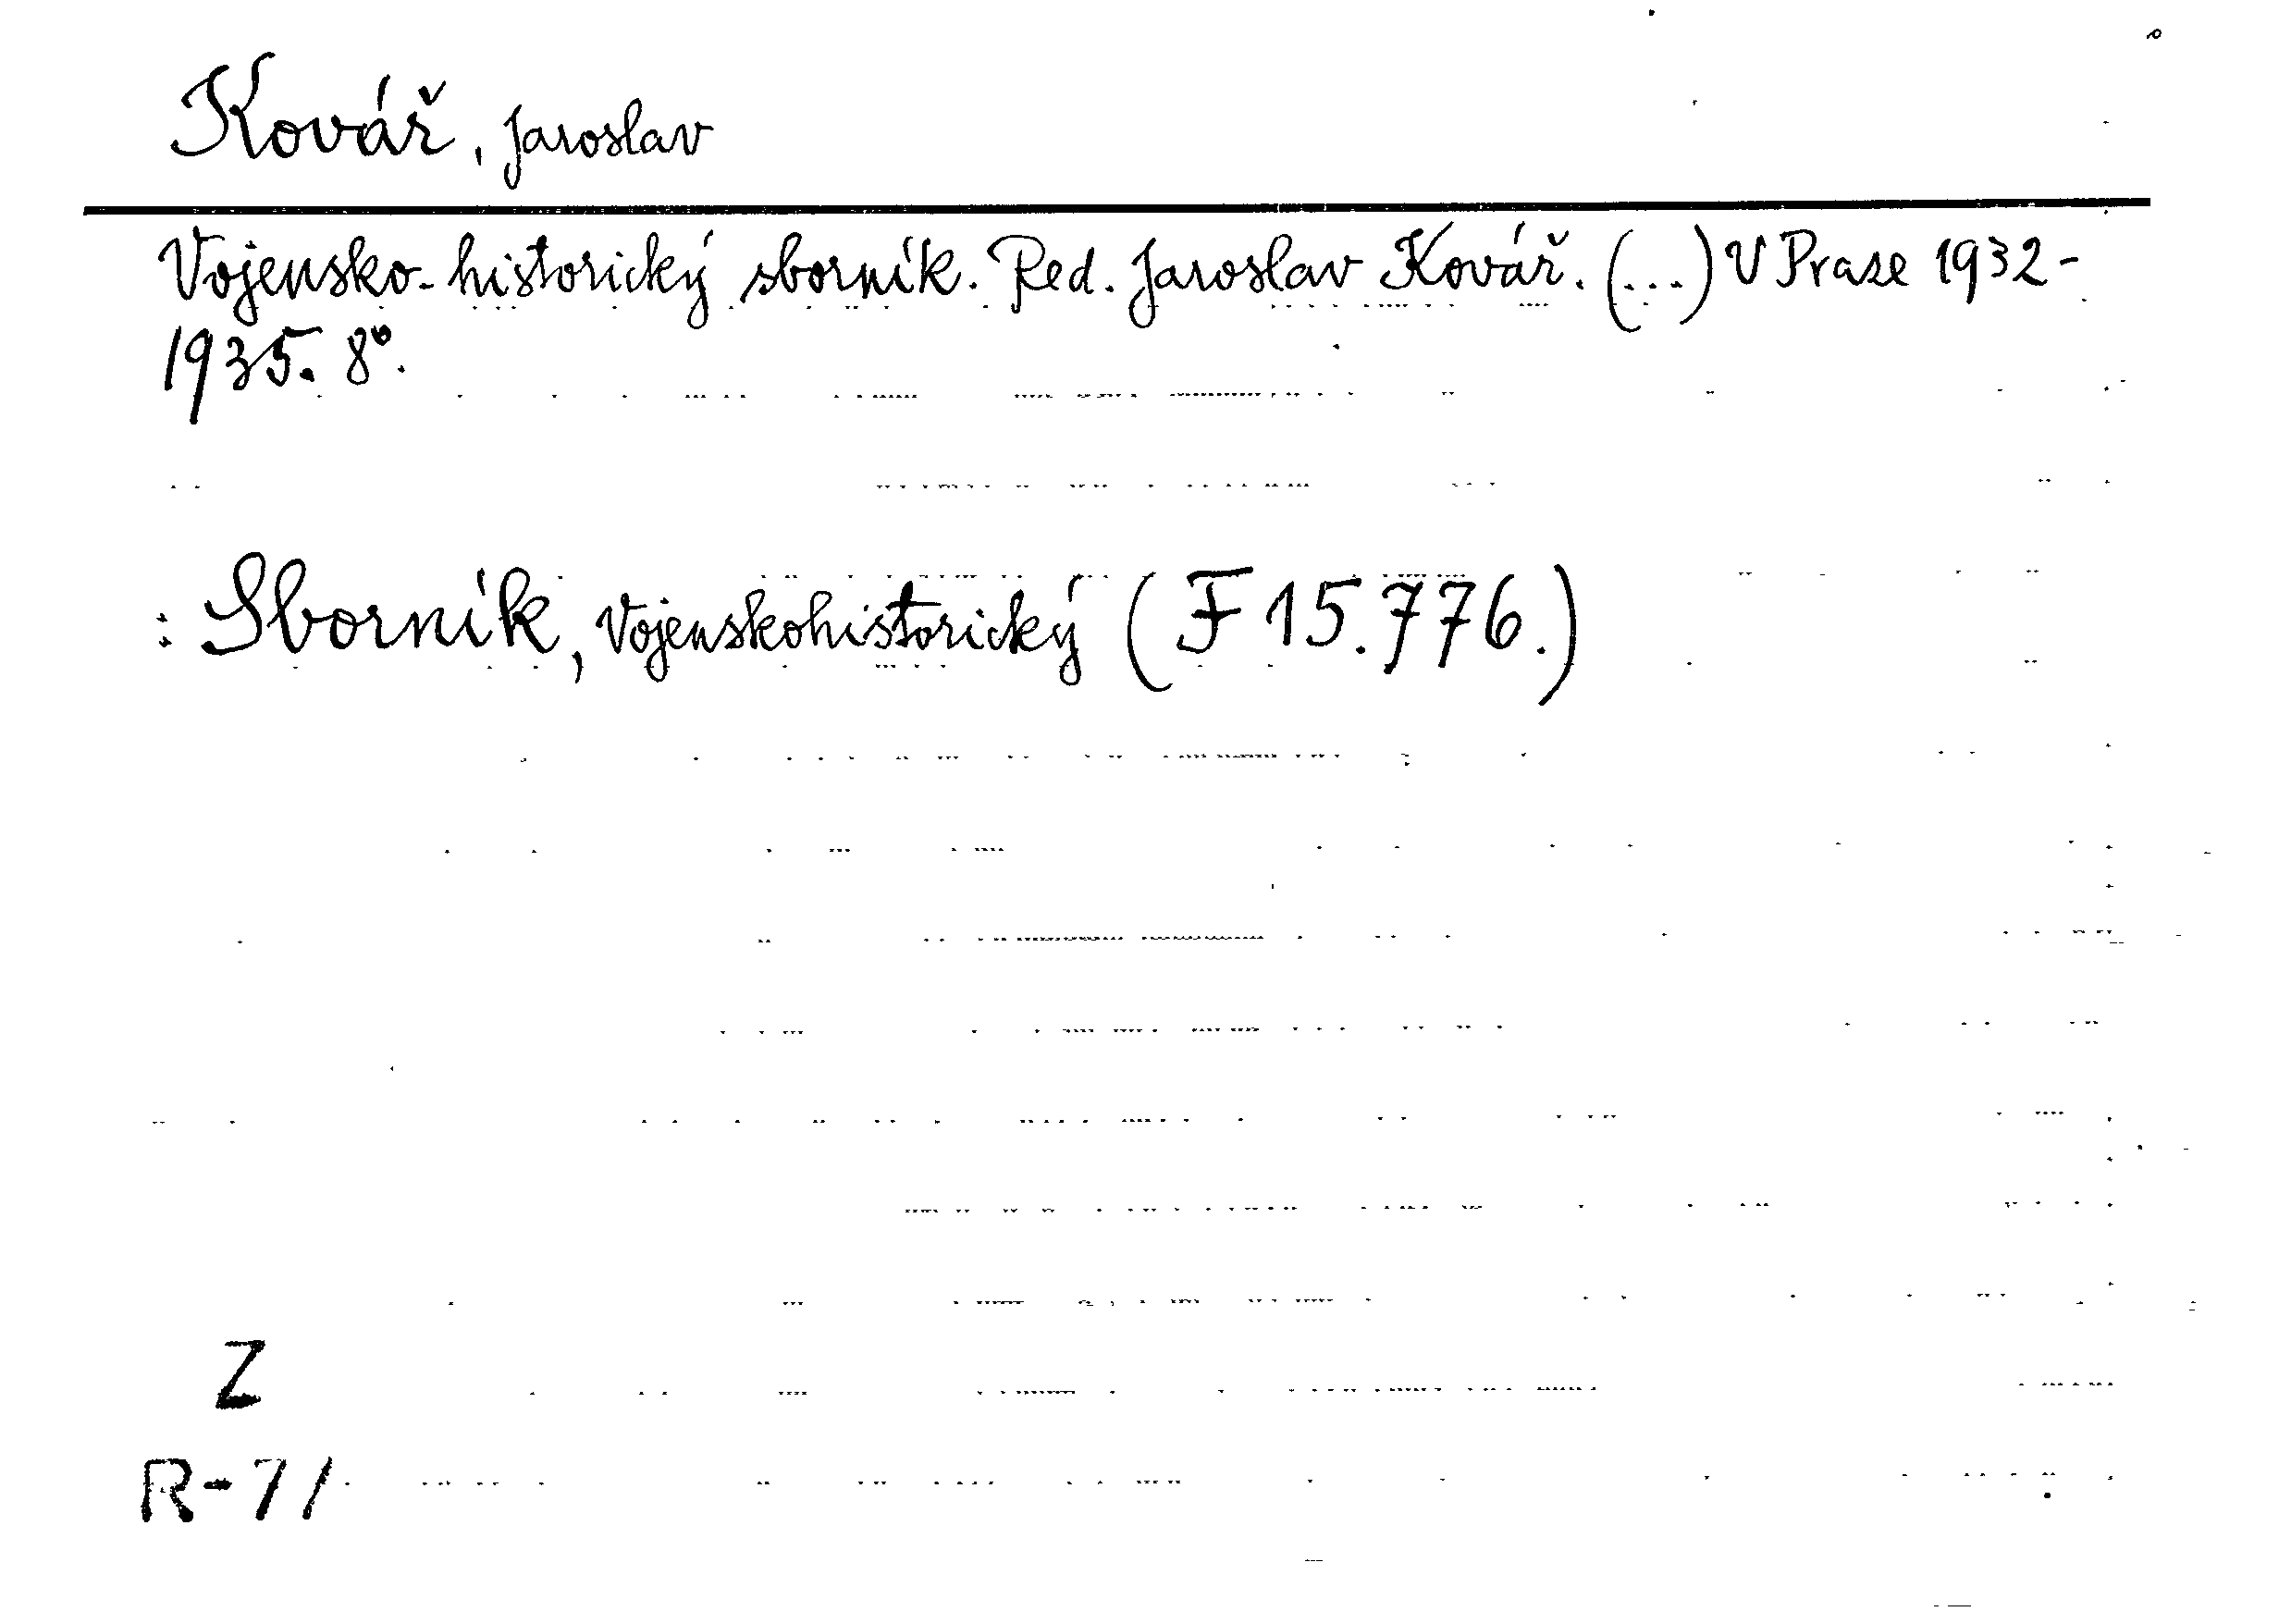 Kovář, Jaroslav
Vojensko-historický sborník. Red. Jaroslav Kovář. (...) V Praze 1932-
1935. 8°.
: Sborník, Vojenskohistorický (F 15.776.)
Z
R-71